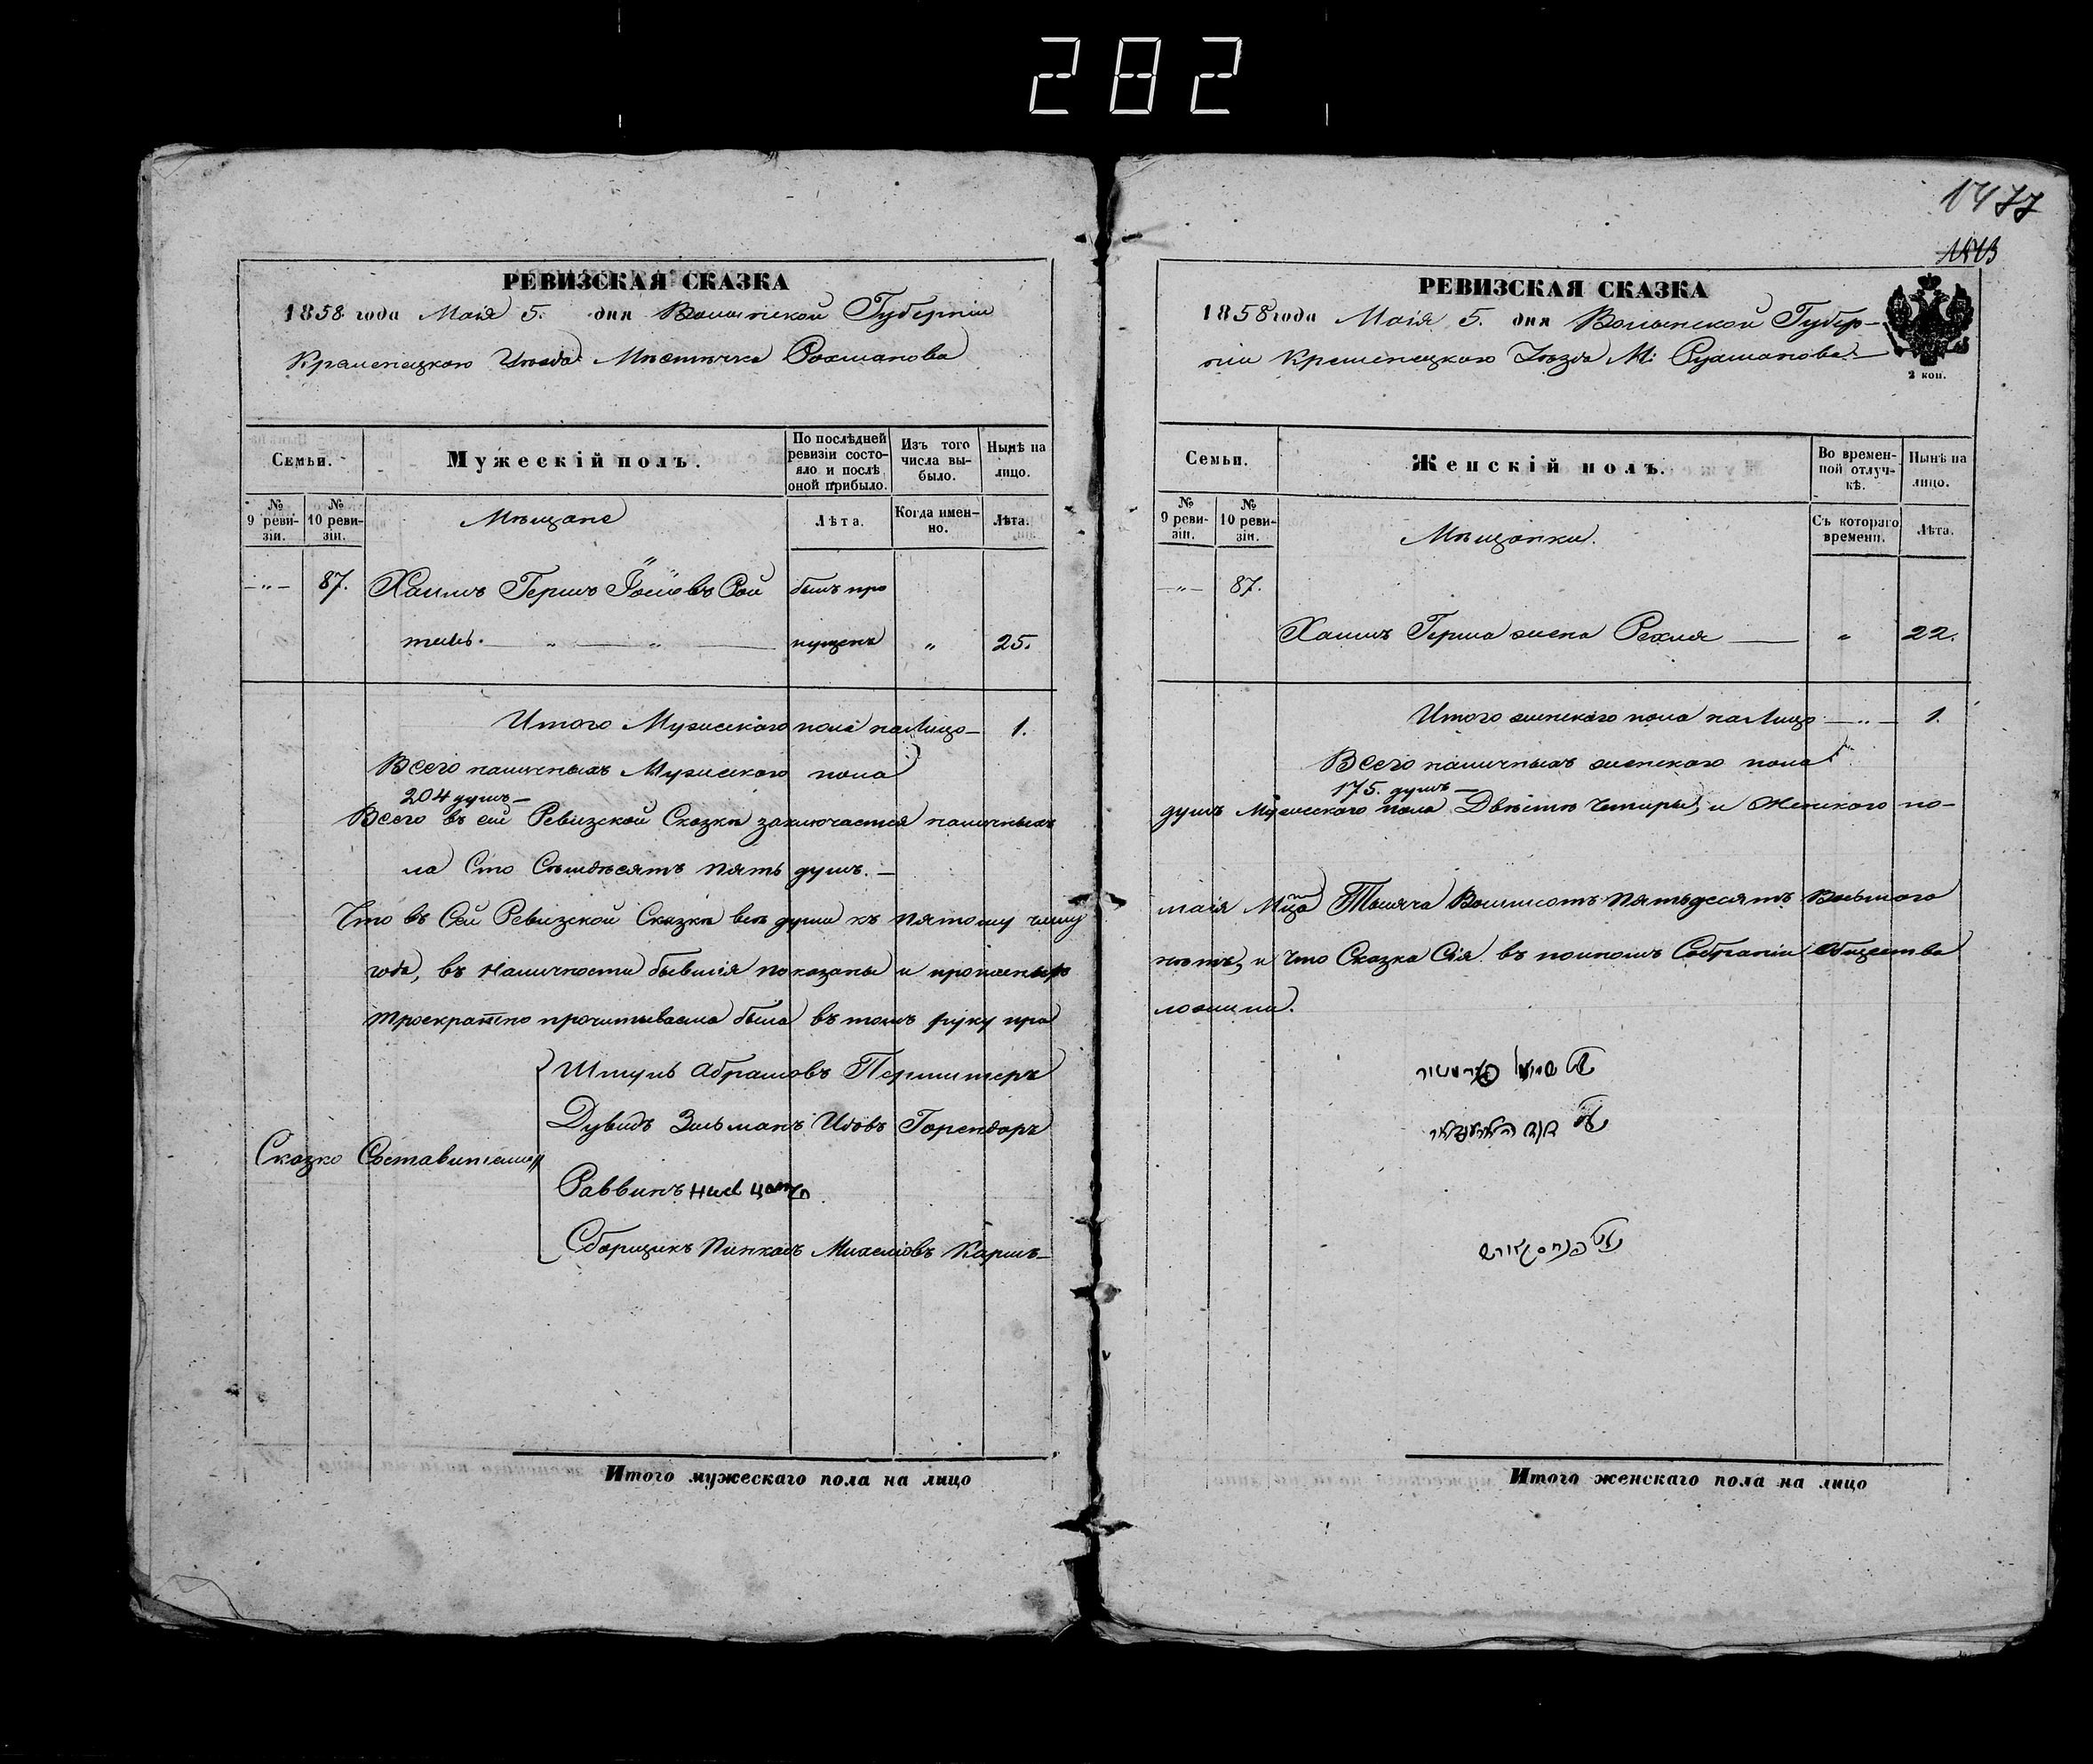 282
РЕВИЗСКАЯ СКАЗКА
1858 года Маія 5. дня Волынской Губерніи
Кременецкаго Уѣзда Мѣстечка Рохманова
Семьи.
Мужескій полъ.
По послѣдней ревизіи состояло и послѣ оной прибыло.
Изъ того числа выбыло.
Нынѣ на лицо.
№ 9 ревизіи.
№ 10 ревизіи.
Мѣщане
Лѣта.
Когда именно.
Лѣта.
87. Хаимъ Гершъ Іосіовъ Рой былъ про
тиль. пущенъ " 25.
Итого Мужескаго пола на Лицо 1.
Всего наличныхъ Мужеского пола
204 душъ
Всего въ сей Ревизской Сказкѣ заключается наличныхъ
ла Сто Семьдесятъ пять душъ.
Что въ Сей Ревизской Сказкѣ всѣ души къ пятому числу
года, въ наличности бывшія показаны и
троекратно прочитываема была въ томъ руку при
Шмуль Абрамовъ
Дувидъ Зильманъ
Сказко Составители
Раввинъ
Сборщикъ Пинкасъ
Итого мужескаго пола на лицо
1477
РЕВИЗСКАЯ СКАЗКА
1858 года Маія 5. дня Волынской Губер-
ніи Кременецкаго Уѣзда М: Рухманова
2 коп.
Семьи.
Женскій полъ.
Во временной отлучкѣ.
Нынѣ на лицо.
№ 9 ревизіи.
№ 10 ревизіи.
Мѣщанки.
Съ котораго времени.
Лѣта.
87.
Хаимъ Герша жена Рехля " 22.
Итого женскаго пола на Лицо 1.
Всего наличныхъ женскаго пола
175. душъ
душъ Мужескаго пола Двѣсти Четыри, и Женскаго по-
маія М-ца Тысяча Восмисотъ Пятьдесятъ Восьмого
нѣтъ, и что Сказка Сія въ полномъ Собраніи Общества
ложили.
Итого женскаго пола на лицо